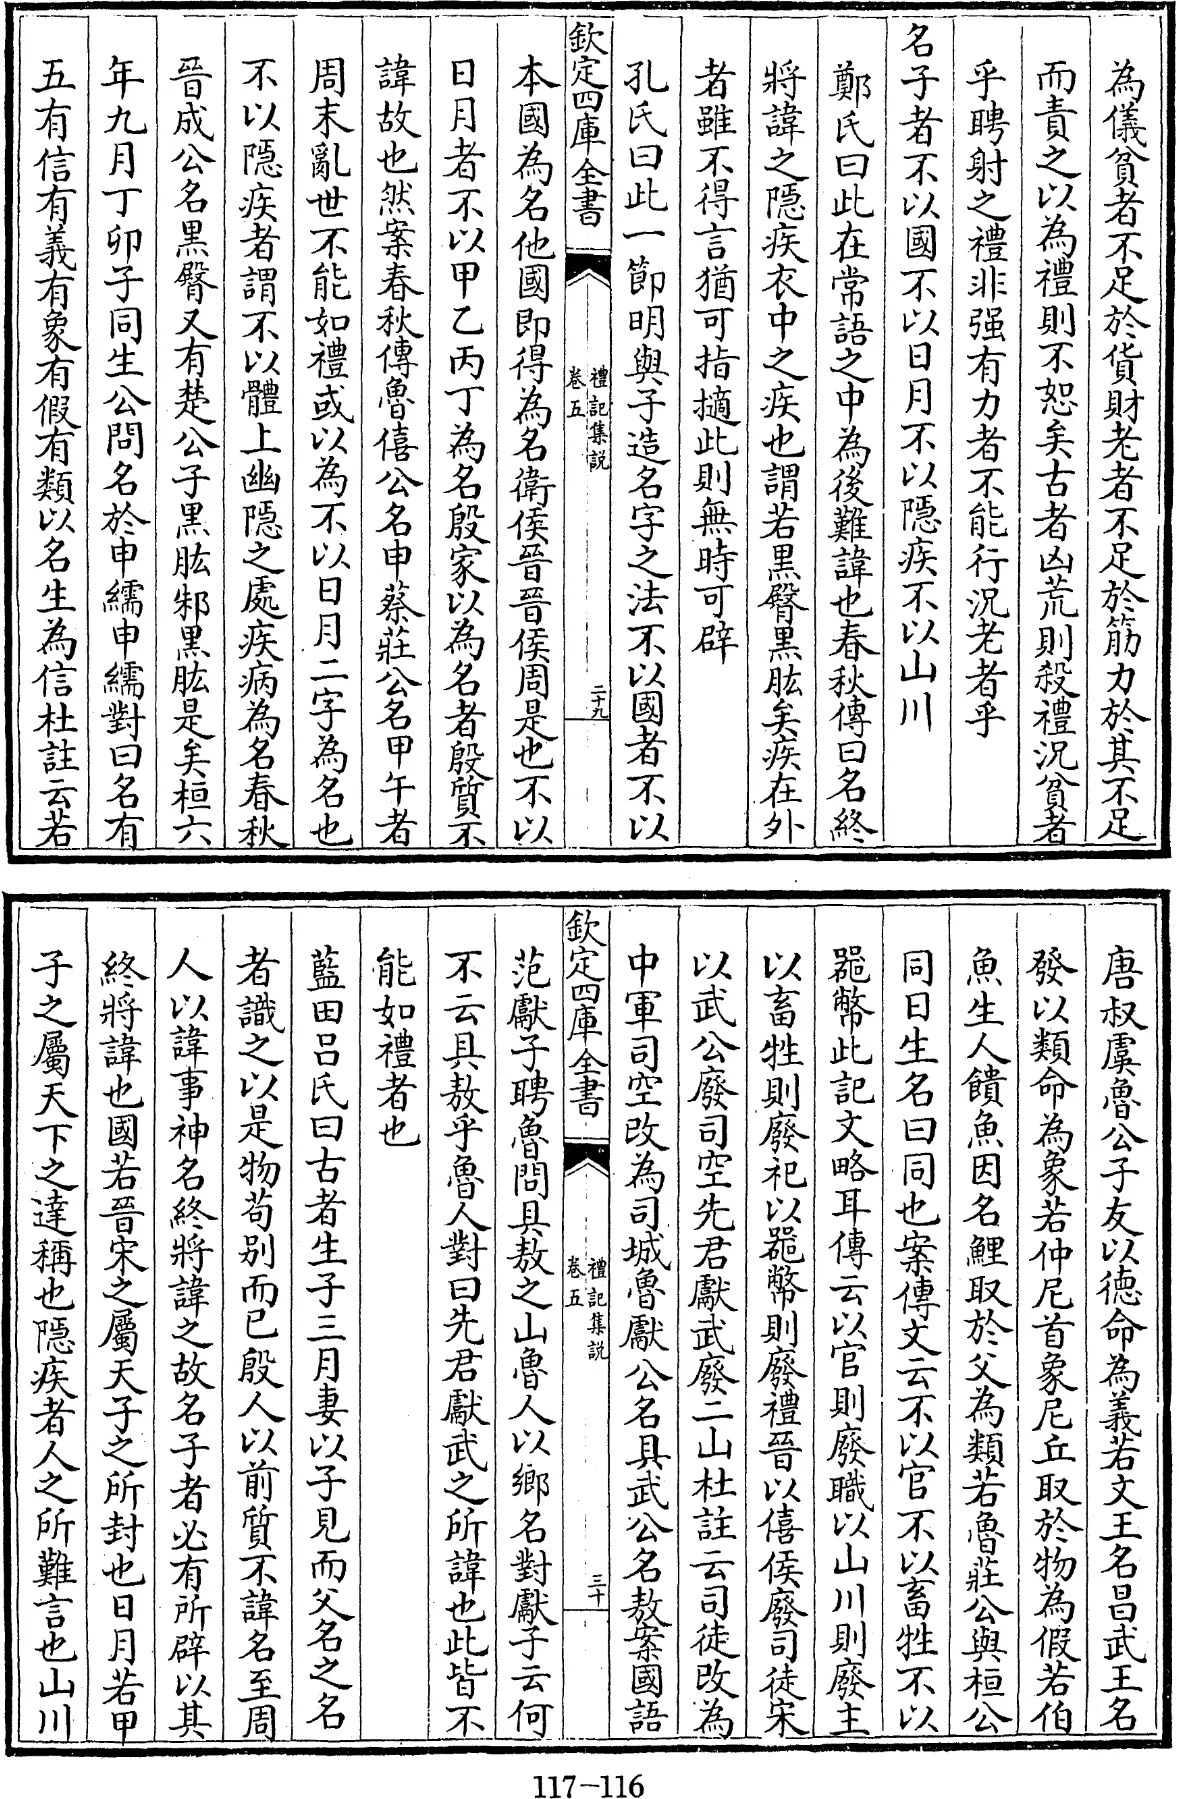 為儀貧者不足於貨財老者不足於筋力於其不足
而責之以為禮則不恕矣古者凶荒則殺禮況貧者
乎聘射之禮非强有力者不能行況老者乎
名子者不以國不以日月不以隱疾不以山川
鄭氏曰此在常語之中為後難諱也春秋傳曰名終
將諱之隱疾衣中之疾也謂若黒臀黒肱矣疾在外
者雖不得言猶可指擿此則無時可辟
孔氏曰此一節明與子造名字之法不以國者不以
欽定四庫全書
禮記集説
卷五
二十九
本國為名他國即得為名衛侯晉晉侯周是也不以
日月者不以甲乙丙丁為名殷家以為名者殷質不
諱故也然案春秋傳魯僖公名申蔡莊公名甲午者
周末亂世不能如禮或以為不以日月二字為名也
不以隱疾者謂不以體上幽隱之處疾病為名春秋
晉成公名黒臀又有楚公子黒肱邾黒肱是矣桓六
年九月丁卯子同生公問名於申繻申繻對曰名有
五有信有義有象有假有類以名生為信杜註云若
唐叔虞魯公子友以德命為義若文王名昌武王名
發以類命為象若仲尼首象尼丘取於物為假若伯
魚生人饋魚因名鯉取於父為類若魯莊公與桓公
同日生名曰同也案傳文云不以官不以畜牲不以
噐幣此記文略耳傳云以官則廢職以山川則廢主
以畜牲則廢祀以噐幣則廢禮晉以僖侯廢司徒宋
以武公廢司空先君獻武廢二山杜註云司徒改為
中軍司空改為司城魯獻公名具武公名敖案國語
欽定四庫全書
禮記集説
卷五
三十
范獻子聘魯問具敖之山魯人以鄉名對獻子云何
不云具敖乎魯人對曰先君獻武之所諱也此皆不
能如禮者也
藍田吕氏曰古者生子三月妻以子見而父名之名
者識之以是物茍别而已殷人以前質不諱名至周
人以諱事神名終將諱之故名子者必有所辟以其
終將諱也國若晉宋之屬天子之所封也日月若甲
子之屬天下之達稱也隱疾者人之所難言也山川
117-116